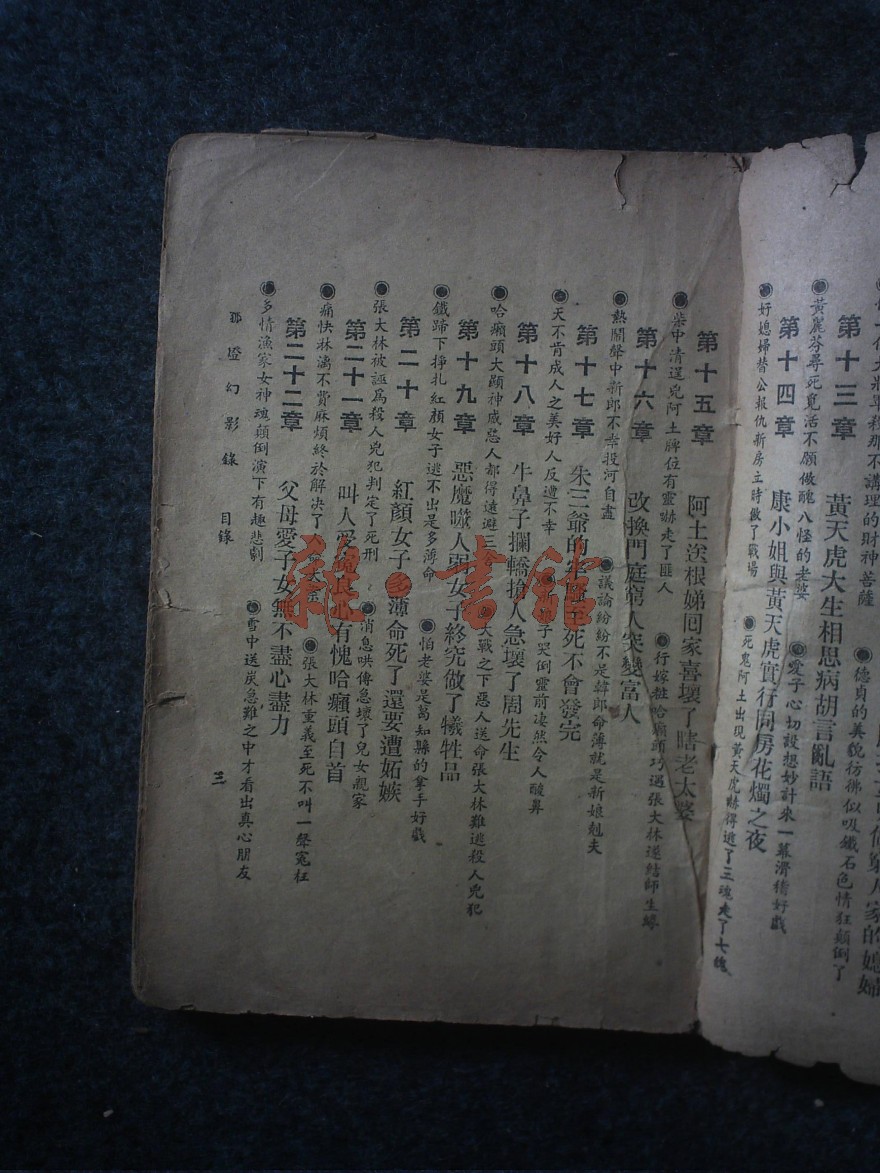 十代大將單殺那不講理的財神菩薩
第十三章 黃天虎大生相思病胡言亂語
●黃麗芬尋死覓活不願做醜八怪的老婆 ●德貞的美貌彷彿似吸鐵石色情狂顛倒了
第十四章 康小姐與黃天虎實行同房花燭之夜
●好媳婦替公報仇新房立時做了戰場 ●愛子心切設想妙計來一幕滑稽好戲
●死鬼阿土出現黃天虎嚇得逃了三魂走了七魄
第十五章 阿土送根娣回家喜壞了瞎老太婆
●柴中清逞兇阿土牌位有靈嚇走了匪人 ●行嫁粧哈癩頭巧遇張大林遂結師生緣
第十六章 改換門庭窮人突變富人
●熱鬧聲中新郎不幸投河自盡 ●議論紛紛不是韓郎命薄就是新娘剋夫
第十七章 朱三爺的至死不會發完
●天不肯成人之美好人反遭不幸 子哭倒靈前凄然令人酸鼻
第十八章 牛鼻子攔轎搶人急壞了周先生
●哈癩頭大顯神威惡人都得遠避三 大戰之下惡人送命張大林難逃殺人兇犯
第十九章 惡魔噬人弱女子終究做了犧牲品
●鐵蹄下掙扎紅顏女子逃不出是多薄命 ●怕老婆是葛知縣的拿手好戲
第二十章 紅顏女子多薄命死了還要遭妬嫉
●張大林被誣爲殺人兇犯判定了死刑 ●消息哄傳急壞了兒女親家
第二十一章 叫人受餽良心有愧哈癩頭自首
●痛快林漓不費麻煩終於解決了 ●張大林重義至死不叫一聲冤枉
第二十二章 父母愛子女無不盡心盡力
●多情漁家女神魂顛倒演下有趣悲劇 ●雪中送炭急難之中才看出真心朋友
幻影錄 目錄 三
雜·書館